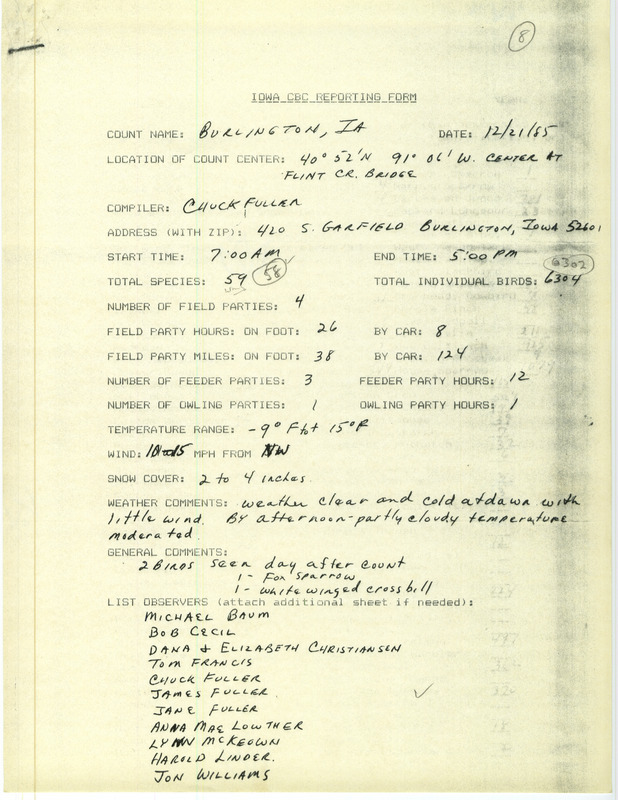 8
IOWA CBC REPORTING FORM
COUNT NAME: BURLINGTON, IA DATE: 12/21/85
LOCATION OF COUNT CENTER: 40° 52'N 91° 06' W. CENTER AT
FLINT CR. BRIDGE
COMPILER: CHUCK FULLER
ADDRESS (WITH ZIP): 420 S. GARFIELD BURLINGTON, IOWA 52601
START TIME: 7:00 AM END TIME: 5:00 PM
6302
TOTAL SPECIES: 59 58 TOTAL INDIVIDUAL BIRDS: 6304
NUMBER OF FIELD PARTIES: 4
FIELD PARTY HOURS: ON FOOT: 26 BY CAR: 8
FIELD PARTY MILES: ON FOOT: 38 BY CAR: 124
NUMBER OF FEEDER PARTIES: 3 FEEDER PARTY HOURS: 12
NUMBER OF OWLING PARTIES: 1 OWLING PARTY HOURS: 1
TEMPERATURE RANGE: -9° F to 15°F
WIND: 10-15 MPH FROM NW
SNOW COVER: 2 to 4 inches
WEATHER COMMENTS: weather clear and cold at dawn with
little wind. BY afternoon-partly cloudy temperature
moderated.
GENERAL COMMENTS:
2 BIRDS seen day after count
1 - Fox sparrow
1 - white winged crossbill
LIST OBSERVERS (attach additional sheet if needed):
MICHAEL BAUM
BOB CECIL
DANA & ELIZABETH CHRISTIANSEN
TOM FRANCIS
CHUCK FULLER
JAMES FULLER
JANE FULLER
ANNA MAE LOWTHER
LYNN MCKEOWN
HAROLD LINDER.
JON WILLIAMS